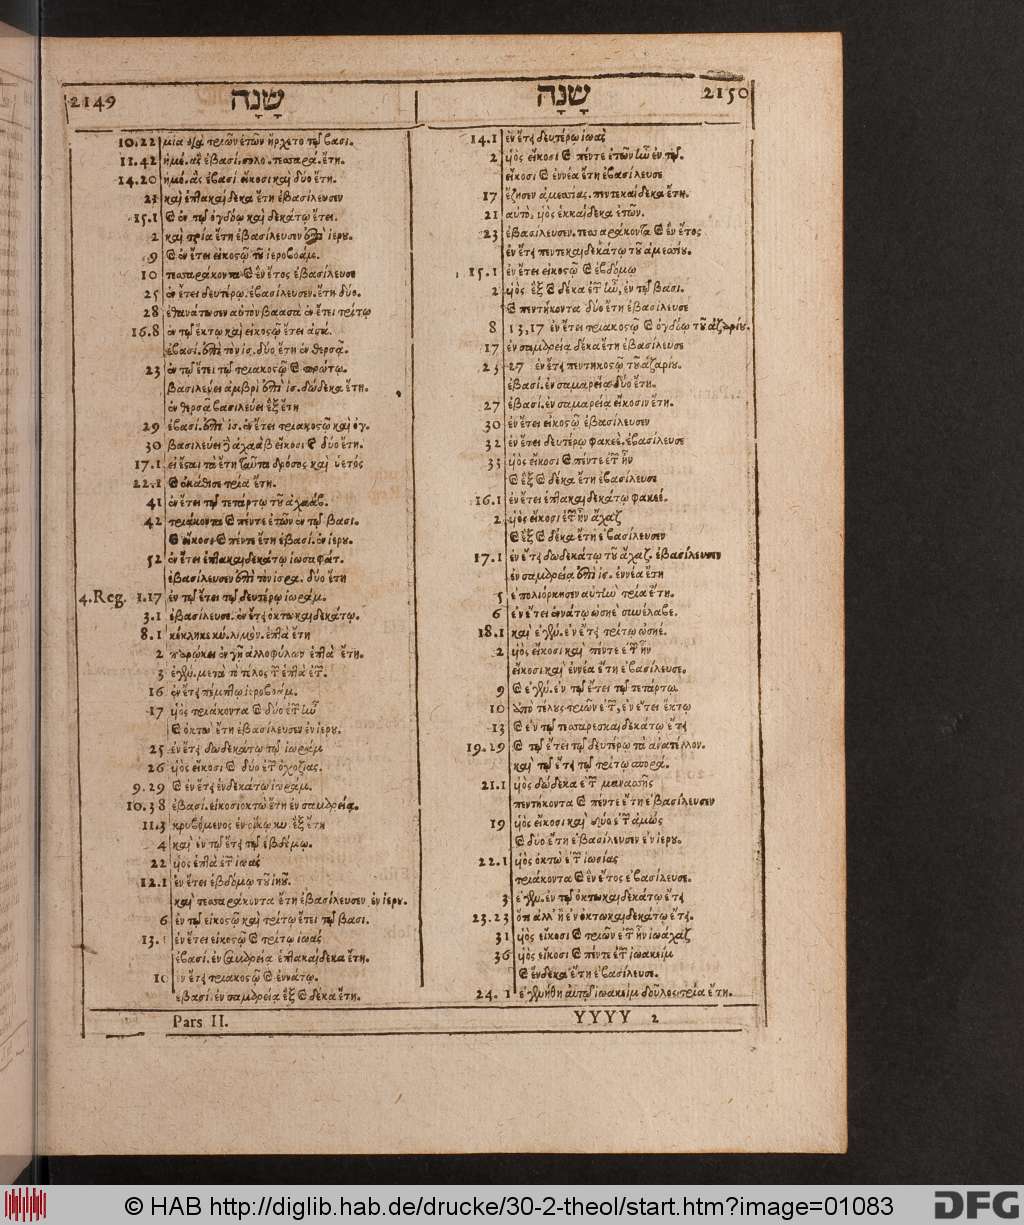 2149 שָׁנָה
10.22 μία διὰ τριῶν ἐτῶν ἤρχετο τῷ βασι.
11.42 ἡμέ. ἃς ἐβασί. σολο. τεσσαρά. ἔτη.
14.20 ἡμέ. ἃς ἐβασί εἴκοσι καὶ δύο ἔτη.
21 καὶ ἑπτακαίδεκα ἔτη ἐβασίλευσεν
15.1 καὶ ἐν τῷ ὀγδόῳ καὶ δεκάτῳ ἔτει.
2 καὶ τρία ἔτη ἐβασίλευσεν ἐπὶ ἱερου.
9 καὶ ἐν ἔτει εἰκοστῷ τοῦ ἱεροβοάμ.
10 τεσσαράκοντα καὶ ἓν ἔτος ἐβασίλευσε
25 ἐν ἔτει δευτέρῳ. ἐβασίλευσεν. ἔτη δύο.
28 ἐθανάτωσεν αὐτὸν βαασὰ ἐν ἔτει τρίτῳ
16.8 ἐν τῷ ἕκτῳ καὶ εἰκοστῷ ἔτει ἀσά.
ἐβασί. ἐπὶ τὸν ἰσ. δύο ἔτη ἐν θερσᾷ.
23 ἐν τῷ ἔτει τῷ τριακοστῷ καὶ πρώτῳ.
βασιλεύει ἀμβρὶ ἐπὶ ἰσ. δώδεκα ἔτη.
ἐν θερσᾷ βασιλεύει ἓξ ἔτη
29 ἐβασί. ἐπὶ ἰσ. ἐν ἔτει τριακοστῷ καὶ ὀγ.
30 βασιλεύει ἀχαὰβ εἴκοσι καὶ δύο ἔτη.
17.1 εἰ ἔσται τὰ ἔτη ταῦτα δρόσος καὶ ὑετός
22.1 καὶ ἐκάθισε τρία ἔτη.
41 ἐν ἔτει τῷ τετάρτῳ τοῦ ἀχαάβ.
42 τριάκοντα καὶ πέντε ἐτῶν ἐν τῷ βασι.
καὶ εἴκοσι καὶ πέντε ἔτη ἐβασί. ἐν ἱερου.
52 ἐν ἔτει ἑπτακαιδεκάτῳ ἰωσαφάτ.
ἐβασίλευσεν ἐπὶ τὸν ἰσρα. δύο ἔτη
4.Reg. 1.17 ἐν τῷ ἔτει τῷ δευτέρῳ ἰωράμ.
3.1 ἐβασίλευσε. ἐν ἔτει ὀκτωκαιδεκάτῳ.
8.1 κέκληκε κύ. λιμὸν. ἑπτὰ ἔτη
2 παρῴκει ἐν γῇ ἀλλοφύλων ἑπτὰ ἔτη.
3 ἐγέν. μετὰ τὸ τέλος τῶν ἑπτὰ ἐτῶν.
16 ἐν ἔτει πέμπτῳ ἱεροβοάμ.
17 υἱὸς τριάκοντα καὶ δύο ἐτῶν ἦν
καὶ ὀκτὼ ἔτη ἐβασίλευσεν ἐν ἱερου.
25 ἐν ἔτει δωδεκάτῳ τῷ ἰωράμ
26 υἱὸς εἴκοσι καὶ δύο ἐτῶν ὀχοζίας.
9.29 καὶ ἐν ἔτει ἑνδεκάτῳ ἰωράμ.
10.38 ἐβασί. εἰκοσιοκτὼ ἔτη ἐν σαμαρείᾳ.
11.3 κρυβόμενος ἐν οἴκῳ κυ. ἓξ ἔτη
4 καὶ ἐν τῷ ἔτει τῷ ἑβδόμῳ.
22 υἱὸς ἑπτὰ ἐτῶν ἰωάς
12.1 ἐν ἔτει ἑβδόμῳ τοῦ ἰηοῦ.
καὶ τεσσαράκοντα ἔτη ἐβασίλευσεν ἐν ἱερου.
6 ἐν τῷ εἰκοστῷ καὶ τρίτῳ ἔτει τῷ βασι.
13.1 ἐν ἔτει εἰκοστῷ καὶ τρίτῳ ἰωάς
ἐβασί. ἐν σαμαρείᾳ ἑπτακαίδεκα ἔτη.
10 ἐν ἔτει τριακοστῷ καὶ ἐννάτῳ.
ἐβασί. ἐν σαμαρείᾳ ἓξ καὶ δέκα ἔτη.
Pars II.
שָׁנָה 2150
14.1 ἐν ἔτει δευτέρῳ ἰωὰς
2 υἱὸς εἴκοσι καὶ πέντε ἐτῶν ἦν ἐν τῷ.
εἴκοσι καὶ ἐννέα ἔτη ἐβασίλευσε
17 ἔζησεν ἀμεσίας. πεντεκαίδεκα ἔτη.
21 αὐτὸ, υἱὸς ἑκκαίδεκα ἐτῶν.
23 ἐβασίλευσεν. τεσσαράκοντα καὶ ἓν ἔτος
ἐν ἔτει πεντεκαιδεκάτῳ τοῦ ἀμεσίου.
15.1 ἐν ἔτει εἰκοστῷ καὶ ἑβδόμῳ
2 υἱὸς ἓξ καὶ δέκα ἐτῶν ἦν, ἐν τῷ βασι.
καὶ πεντήκοντα δύο ἔτη ἐβασίλευσε
8 13,17 ἐν ἔτει τριακοστῷ καὶ ὀγδόῳ τοῦ ἀζαρίου.
17 ἐν σαμαρείᾳ δέκα ἔτη ἐβασίλευσε
23 27 ἐν ἔτει πεντηκοστῷ τοῦ ἀζαρίου.
ἐβασί. ἐν σαμαρείᾳ δύο ἔτη.
27 ἐβασί. ἐν σαμαρείᾳ εἴκοσιν ἔτη.
30 ἐν ἔτει εἰκοστῷ ἐβασίλευσεν
32 ἐν ἔτει δευτέρῳ φακεὲ. ἐβασίλευσε
33 υἱὸς εἴκοσι καὶ πέντε ἐτῶν ἦν
καὶ ἓξ καὶ δέκα ἔτη ἐβασίλευσε
16.1 ἐν ἔτει ἑπτακαιδεκάτῳ φακεέ.
2 υἱὸς εἴκοσι ἐτῶν ἦν ἄχαζ
καὶ ἓξ καὶ δέκα ἔτη ἐβασίλευσεν
17.1 ἐν ἔτει δωδεκάτῳ τοῦ ἄχαζ. ἐβασίλευσεν
ἐν σαμαρείᾳ ἐπὶ ἰσ. ἐννέα ἔτη
5 ἐπολιόρκησεν αὐτὴν τρία ἔτη.
6 ἐν ἔτει ἐννάτῳ ὠσηὲ συνέλαβε.
18.1 καὶ ἐγέν. ἐν ἔτει τρίτῳ ὠσηέ.
2 υἱὸς εἴκοσι καὶ πέντε ἐτῶν ἦν
εἴκοσι καὶ ἐννέα ἔτη ἐβασίλευσε.
9 καὶ ἐγέν. ἐν τῷ ἔτει τῷ τετάρτῳ.
10 ἀπὸ τέλους τριῶν ἐτῶν, ἐν ἔτει ἕκτῳ
13 καὶ ἐν τῷ τεσσαρεσκαιδεκάτῳ ἔτει
19.29 καὶ τῷ ἔτει τῷ δευτέρῳ τὰ ἀνατέλλον.
καὶ τῷ ἔτει τῷ τρίτῳ σπορά.
21.1 υἱὸς δώδεκα ἐτῶν μανασσῆς
πεντήκοντα καὶ πέντε ἔτη ἐβασίλευσεν
19 υἱὸς εἴκοσι καὶ δύο ἐτῶν ἀμώς
καὶ δύο ἔτη ἐβασίλευσεν ἐν ἱερου.
22.1 υἱὸς ὀκτὼ ἐτῶν ἰωσίας
τριάκοντα καὶ ἓν ἔτος ἐβασίλευσε.
3 ἐγέν. ἐν τῷ ὀκτωκαιδεκάτῳ ἔτει
23.23 ὅτι ἀλλ' ἢ ἐν ὀκτωκαιδεκάτῳ ἔτει.
31 υἱὸς εἴκοσι καὶ τριῶν ἐτῶν ἦν ἰωάχαζ
36 υἱὸς εἴκοσι καὶ πέντε ἐτῶν ἰωακεὶμ
καὶ ἕνδεκα ἔτη ἐβασίλευσε.
24.1 ἐγενήθη αὐτῷ ἰωακεὶμ δοῦλος τρία ἔτη.
YYYY 2
© HAB http://diglib.hab.de/drucke/30-2-theol/start.htm?image=01083
DFG